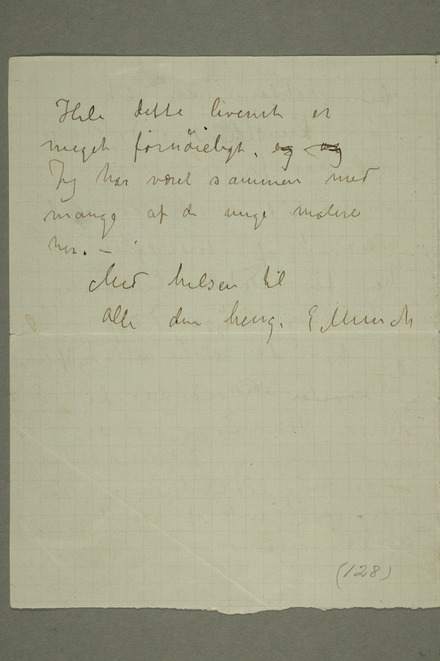 Hele dette levesæt er
meget fornöieligt. og og
Jeg har været sammen med
mange af de unge malere
her. –
Med hilsen til
alle din heng. E Munch
(128)